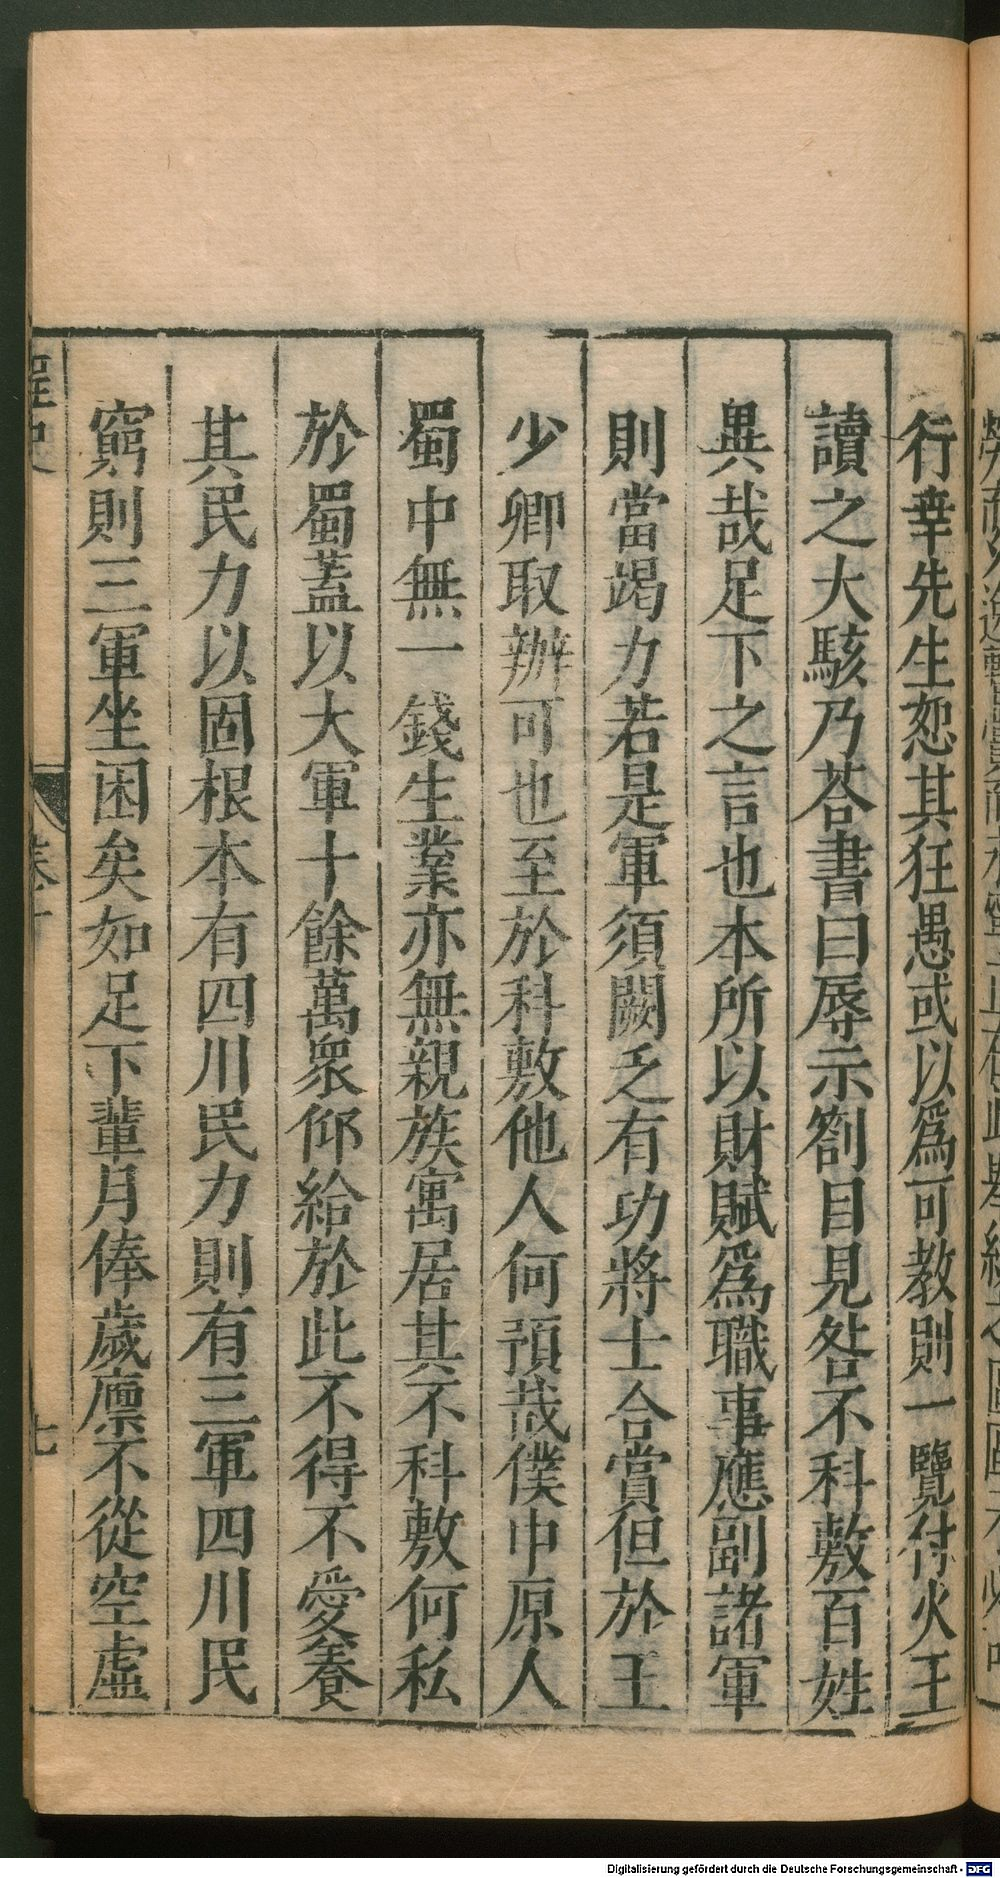 行幸先生恕其狂愚或以爲可教則一覽付火王
讀之大駭乃荅書曰辱示劄目見咎不科敷百姓
異哉足下之言也本所以財賦爲職事應副諸軍
則當竭力若是軍須闕乏有功將士合賞但於王
少卿取辦可也至於科敷他人何預哉僕中原人
蜀中無一錢生業亦無親族寓居其不科敷何私
於蜀蓋以大軍十餘萬衆仰給於此不得不愛養
其民力以固根本有四川民力則有三軍四川民
窮則三軍坐困矣如足下輩月俸歲廪不從空虛
桯史
卷十
七
Digitalisierung gefördert durch die Deutsche Forschungsgemeinschaft - DFG